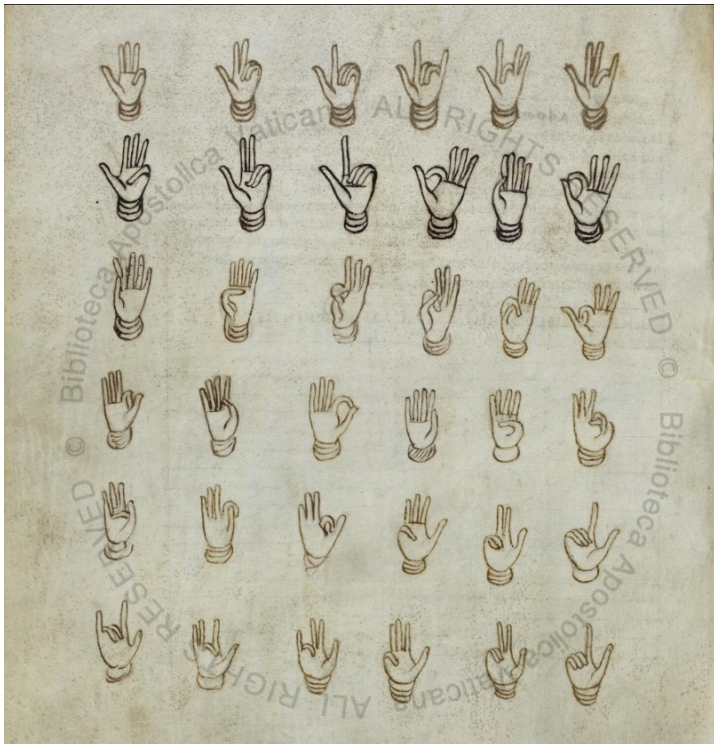 © Biblioteca Apostolica Vaticana ALL RIGHTS RESERVED
© Biblioteca Apostolica Vaticana ALL RIGHTS RESERVED